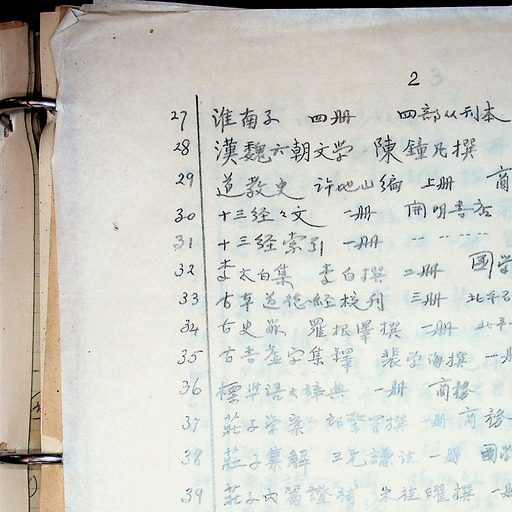 2
27 淮南子 四册 四部丛刊本
28 漢魏六朝文学 陳鐘凡撰
29 道教史 许地山编 上册 商
30 十三经々文 一册 開明書店
31 十三经索引 一册 -- -----
32 李太白集 李白撰 二册 國学
33 古本道德经校刊 三册 北平
34 古史 羅根澤撰 一册 北平
35 古書虚字集釋 裴学海撰 一册
36 標準语大辞典 一册 商務
37 莊子学案 郎擎霄撰 一册 商務
38 莊子集解 王先謙注 一册 國学
39 莊子内篇證補 朱桂曜撰 一册